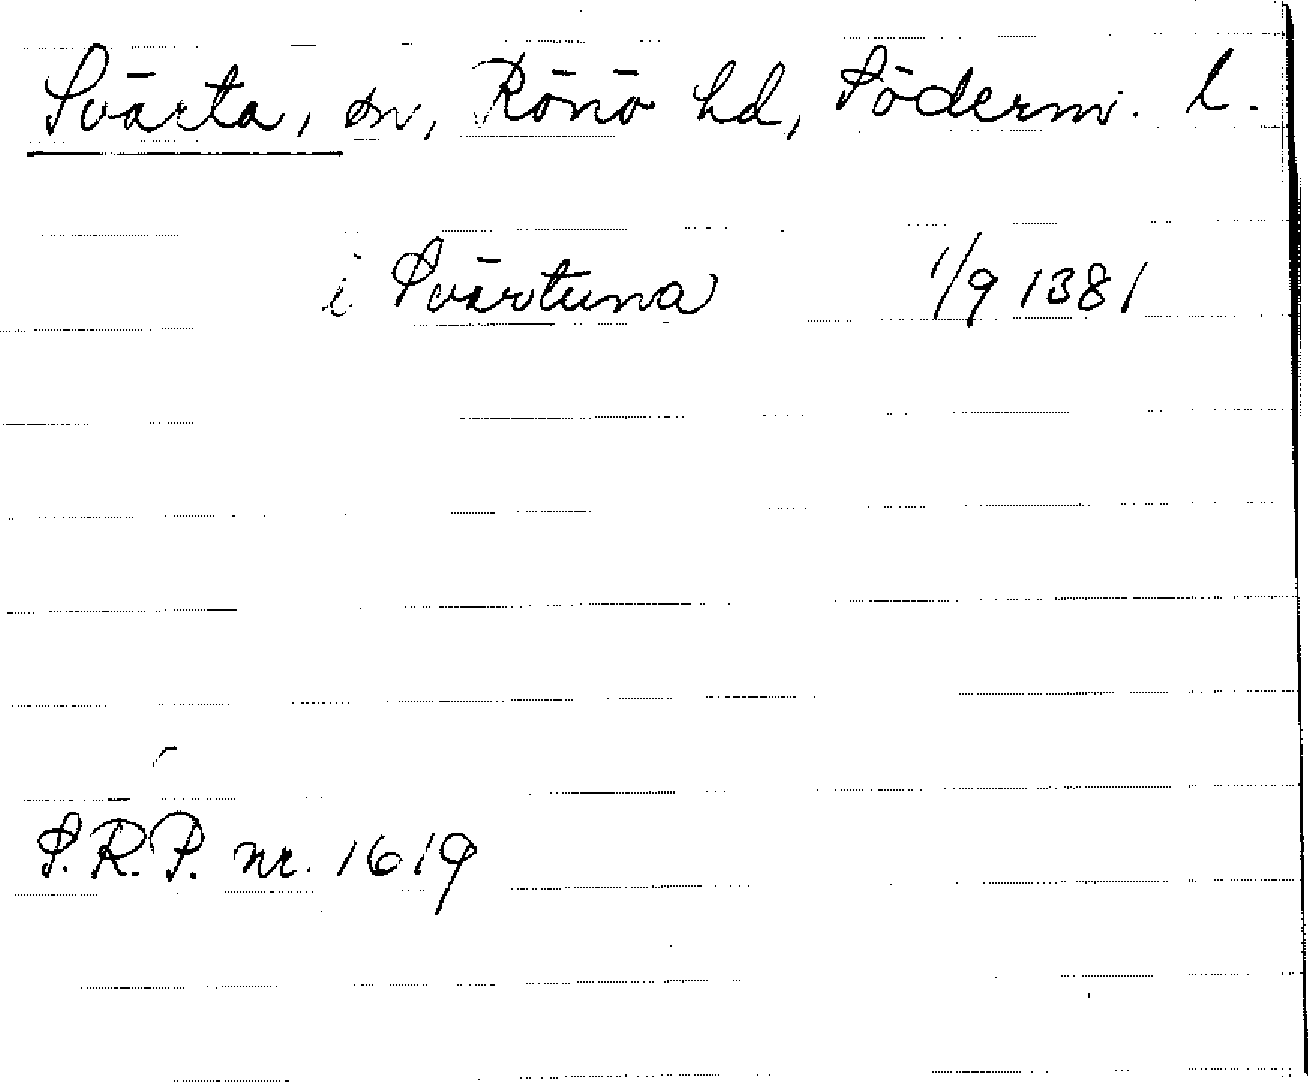 Svärta, sn, Rönö hd, Söderm. l.
i Svärtuna 1/9 1381
S.R.P. nr. 1619